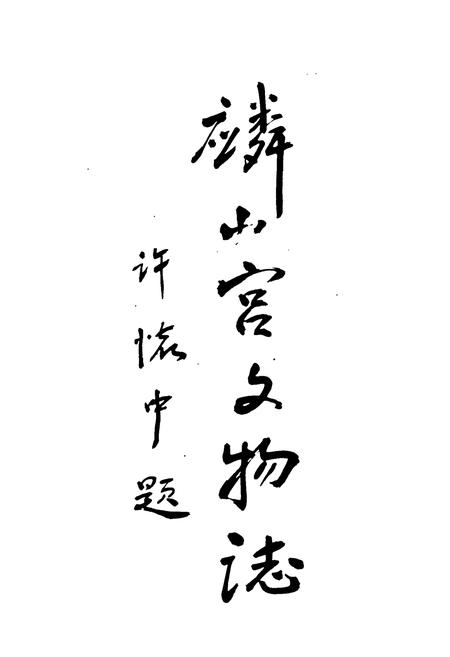 麟山宫文物誌
许怀中题